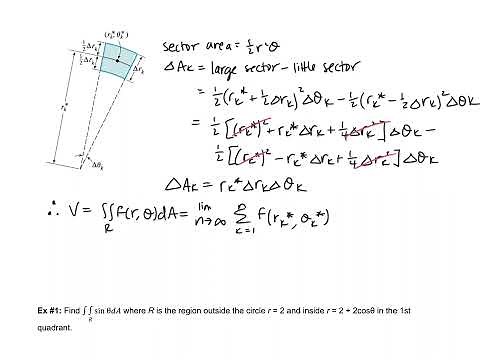 (r_k*, θ_k*)
½Δr_k
½Δr_k
Δr_k
r_k*
Δθ_k
sector area = ½r²θ
ΔA_k = large sector – little sector
= ½(r_k* + ½Δr_k)²Δθ_k – ½(r_k* – ½Δr_k)²Δθ_k
= ½[(r_k*)² + r_k*Δr_k + ¼Δr_k²]Δθ_k –
½[(r_k*)² – r_k*Δr_k + ¼Δr_k²]Δθ_k
ΔA_k = r_k*Δr_kΔθ_k
∴ V = ∬_R f(r, θ)dA = lim n→∞ Σ k=1 n f(r_k*, θ_k*)
Ex #1: Find ∬_R sin θdA where R is the region outside the circle r = 2 and inside r = 2 + 2cosθ in the 1st
quadrant.